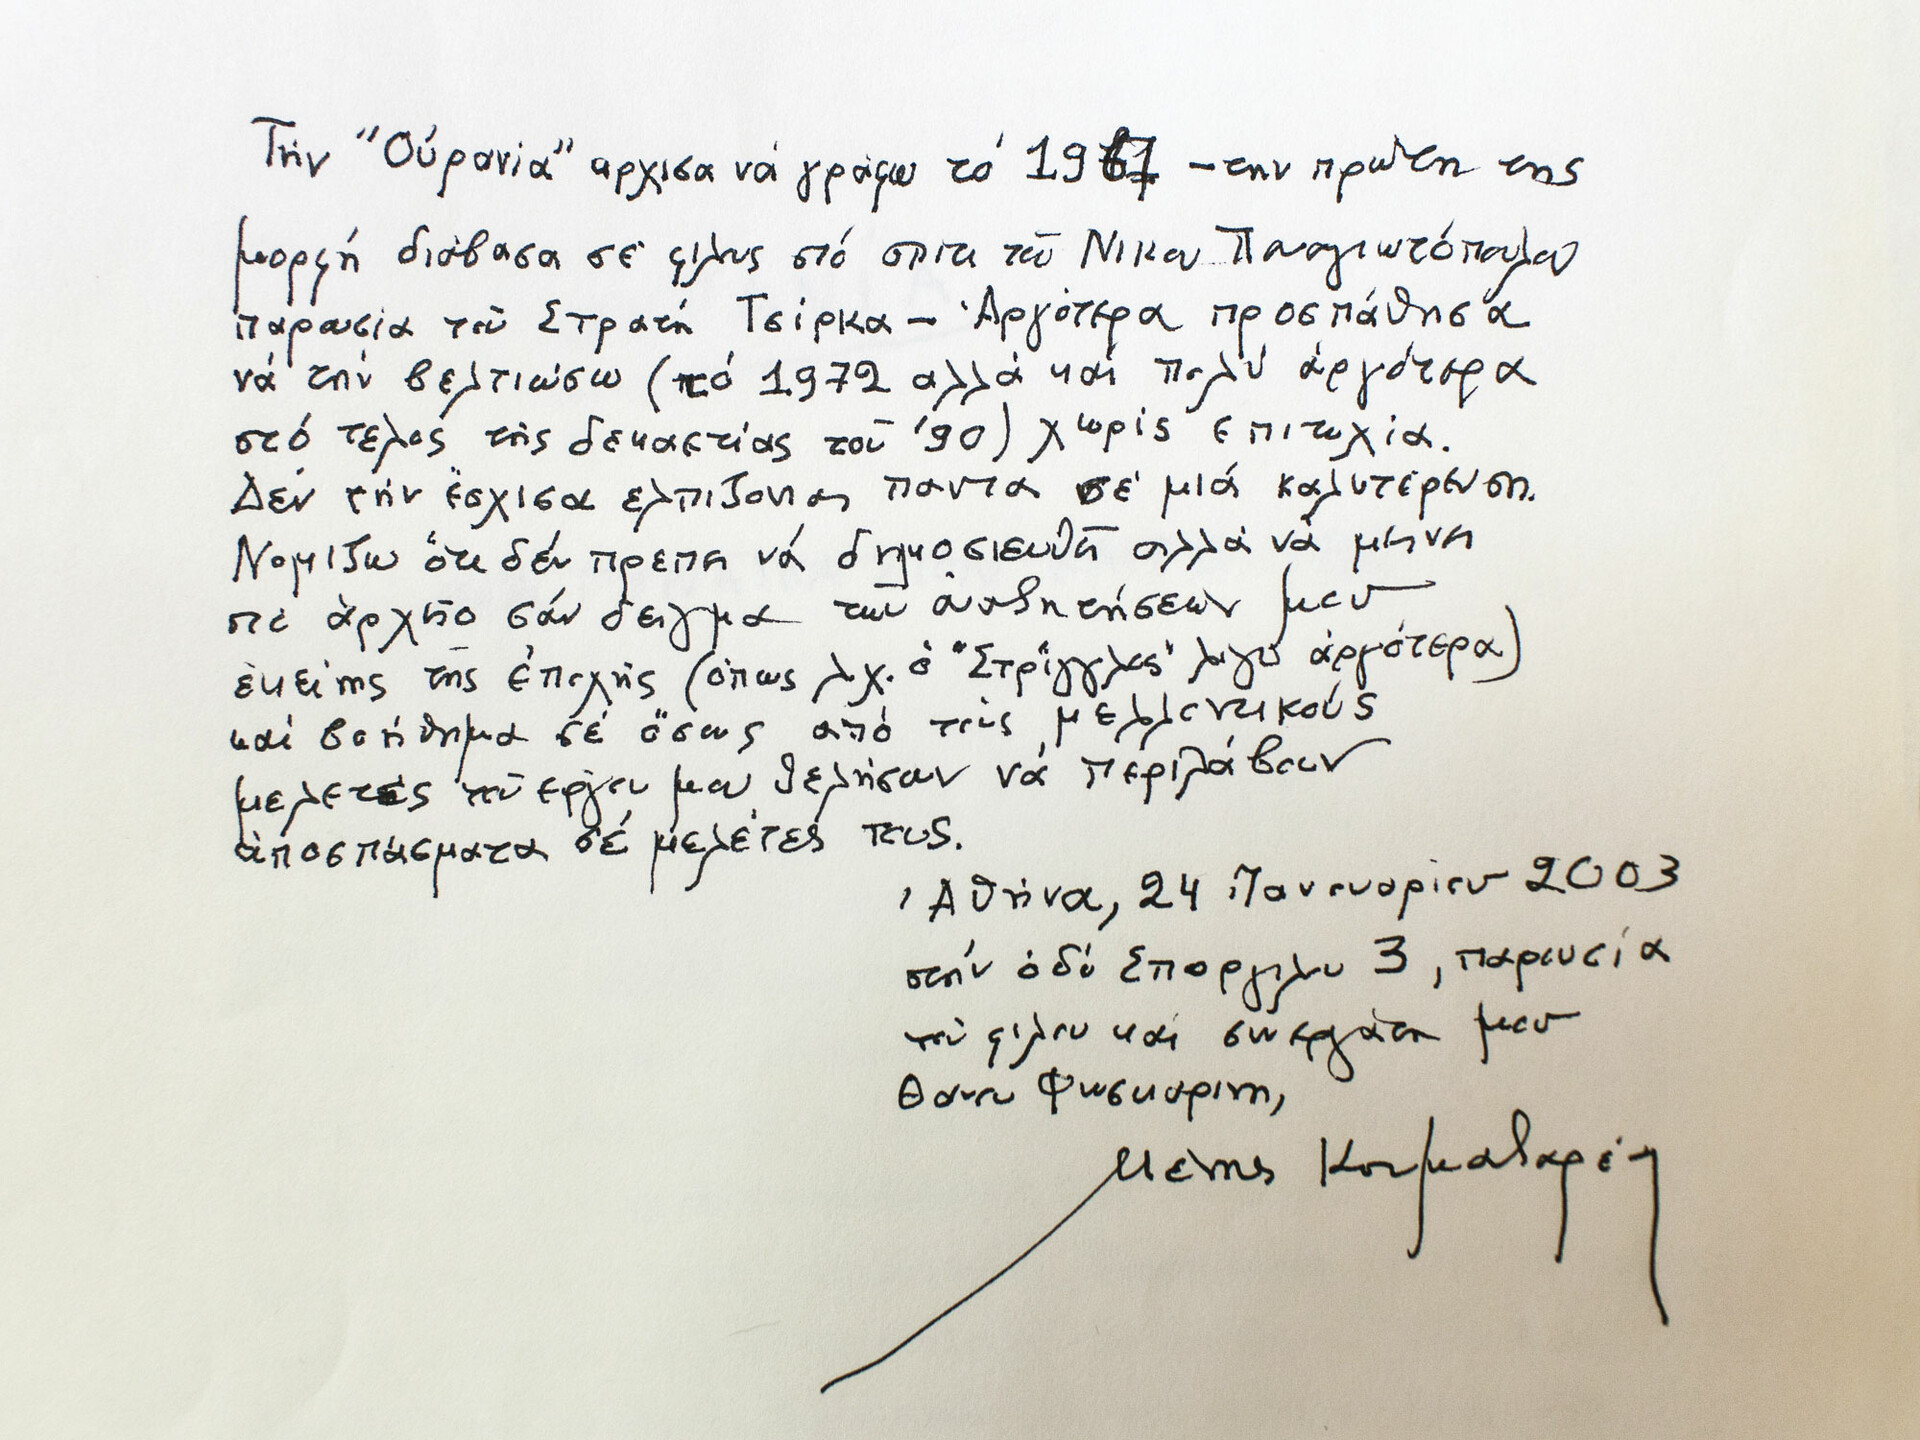 Τήν "Οὐρανία" αρχισα νά γράφω τό 1967 – την πρώτη της
μορφή διάβασα σέ φίλους στό σπίτι τοῦ Νίκου Παναγιωτόπουλου
παρουσία τοῦ Στρατή Τσίρκα – Ἀργότερα προσπάθησα
νά τήν βελτιώσω (τό 1972 αλλά καί πολύ ἀργότερα
στό τελος τῆς δεκαετίας τοῦ '90) χωρίς επιτυχία.
Δέν τήν ἔσχισα ελπιζοντας παντα σέ μιά καλυτέρευση.
Νομιζω ὅτι δέν πρεπει νά δημοσιευθῆ αλλά νά μεινει
στο ἀρχεῖο σάν δειγμα τῶν ἀναζητήσεων μου
ἐκείνης τῆς ἐποχῆς (ὅπως λ.χ. ὁ "Στρίγγλος" λιγο ἀργότερα)
καί βοήθημα σέ ὅσους από τούς μελλοντικούς
μελετητές τοῦ εργου μου θελήσουν νά περιλάβουν
ἀποσπάσματα σέ μελέτες τους.
Ἀθήνα, 24 Ἰανουαρίου 2003
στήν ὁδό Σποργίλου 3, παρουσία
τοῦ φιλου καί συνεργάτη μου
Θανου Φωσκαρινη,
Μένης Κουμανταρέας